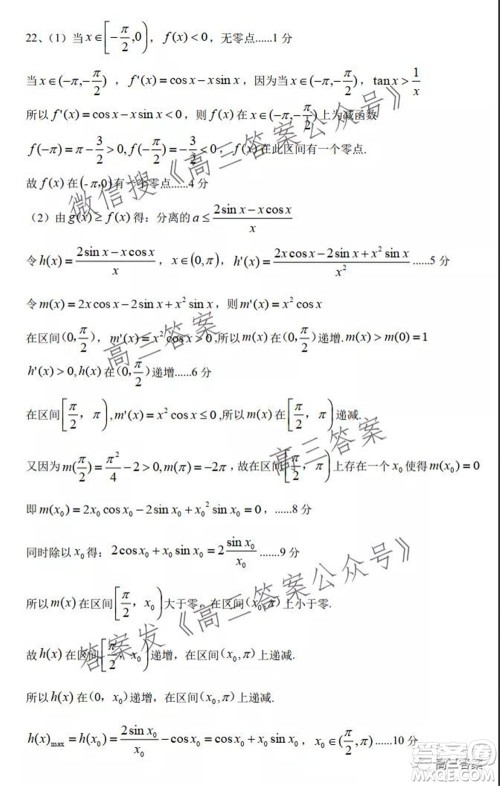 22、（1）当 x∈[-π/2,0)，f(x)<0，无零点......1 分
当 x∈(-π,-π/2)，f'(x)=cos x-x sin x，因为当 x∈(-π,-π/2)，tan x>1/x
所以 f'(x)=cos x-x sin x<0，则 f(x) 在 x∈(-π,-π/2) 上为减函数
f(-π)=π-3/2>0, f(-π/2)=-3/2<0，f(x) 在此区间有一个零点.
故 f(x) 在(-π,0)有一个零点......4 分
（2）由 g(x)≥f(x) 得：分离的 a≤(2sin x-x cos x)/x
令 h(x)=(2sin x-x cos x)/x，x∈(0,π)，h'(x)=(2x cos x-2sin x+x² sin x)/x² ......5 分
令 m(x)=2x cos x-2sin x+x² sin x，则 m'(x)=x² cos x
在区间(0,π/2)，m'(x)=x² cos x>0,所以 m(x) 在(0,π/2)递增.m(x)>m(0)=1
h'(x)>0,h(x)在(0,π/2)递增......6 分
在区间[π/2，π),m'(x)=x² cos x≤0,所以 m(x) 在[π/2，π)递减.
又因为 m(π/2)=π²/4-2>0,m(π)=-2π，故在区间[π/2，π)上存在一个 x₀ 使得 m(x₀)=0
即 m(x₀)=2x₀ cos x₀-2sin x₀+x₀² sin x₀=0，......8 分
同时除以 x₀ 得：2cos x₀+x₀ sin x₀=2 sin x₀/x₀ ......9 分
所以 m(x) 在区间[π/2，x₀)大于零，在区间(x₀,π)上小于零.
故 h(x) 在区间[π/2，x₀)递增，在区间(x₀,π)上递减.
所以 h(x) 在(0，x₀)递增，在区间(x₀,π)上递减.
h(x)max=h(x₀)=2sin x₀/x₀-cos x₀=cos x₀+x₀ sin x₀，x₀∈(π/2,π)......10 分
微信搜《高三答案公众号》
高三答案
高三答案
答案发《高三答案公众号》
高三答案